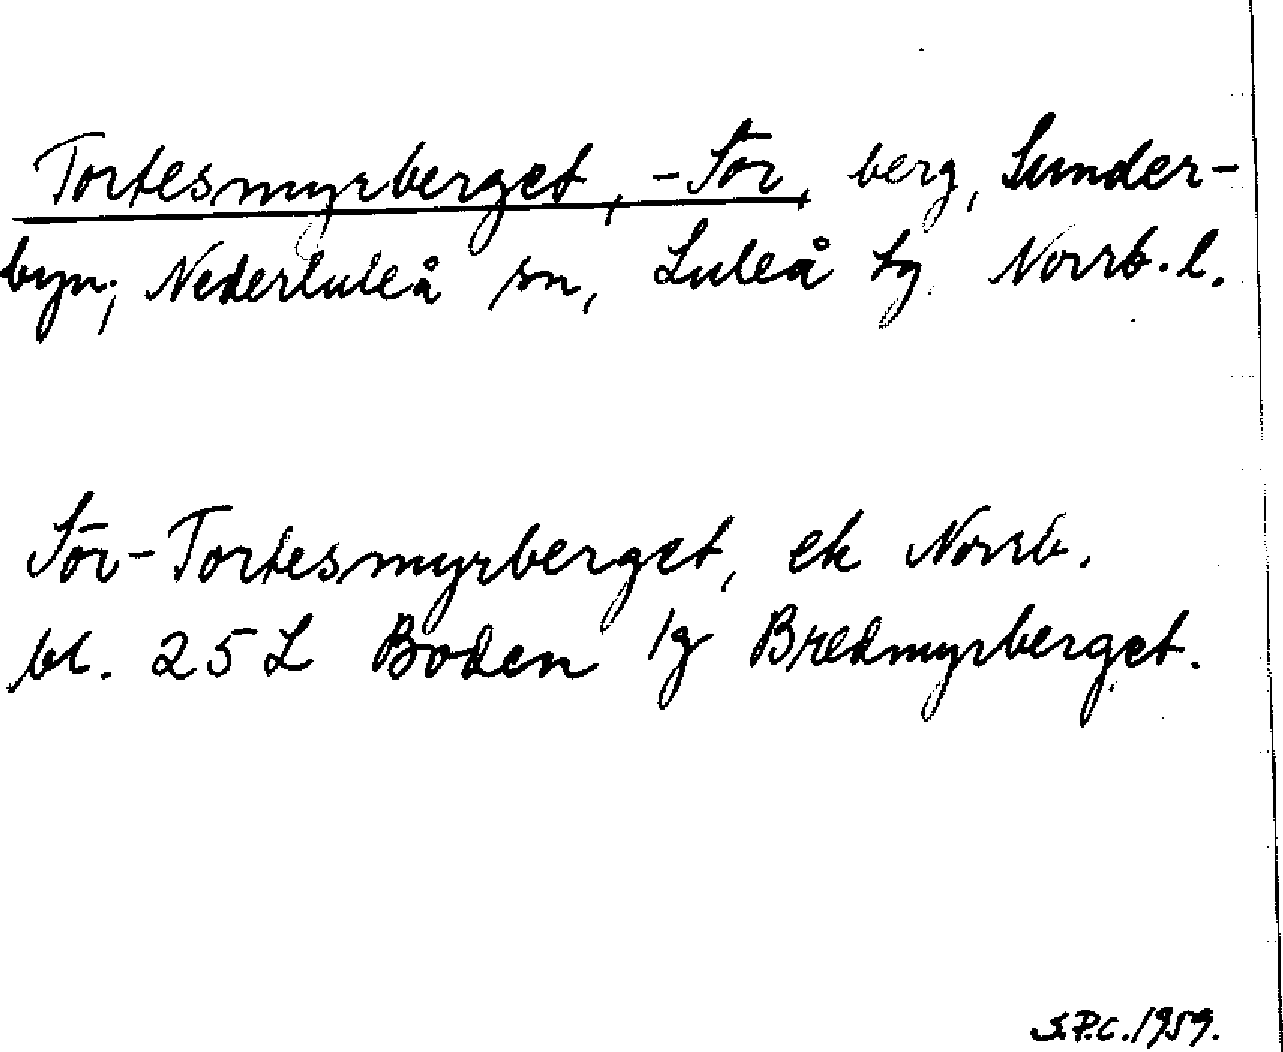 Tortesmyrberget, -Sör, berg, Sunder-
byn, Nederluleå sn, Luleå tg Norrb. l.
Sör-Tortesmyrberget, ek Norrb.
bl. 25 L Boden /g Bredmyrberget.
S.P.C. 1959.